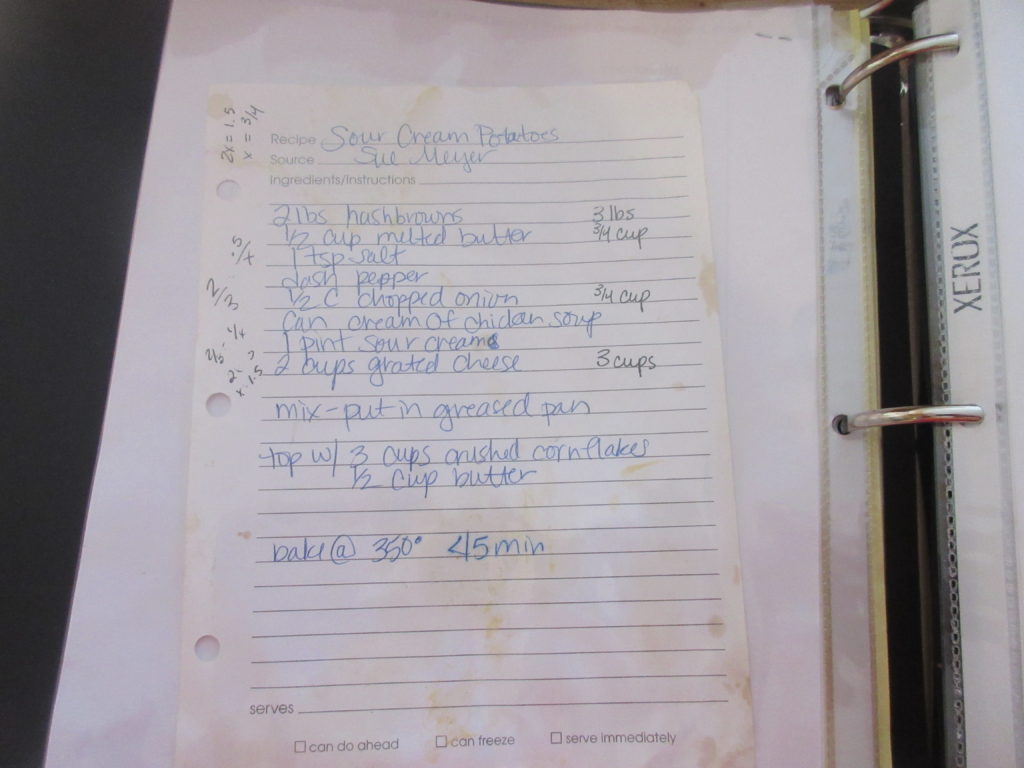 2x = 1.5
x = 3/4
Recipe Sour Cream Potatoes
Source Sue Meyer
Ingredients/Instructions
2 lbs hashbrowns 3 lbs
1/2 cup melted butter 3/4 cup
1 tsp salt
dash pepper
1/2 C chopped onion 3/4 cup
Can cream of chicken soup
1 pint sour cream
2 cups grated cheese 3 cups
mix - put in greased pan
top w/ 3 cups crushed cornflakes
1/2 cup butter
bake @ 350° 45 min
serves
can do ahead can freeze serve immediately
2/3
XEROX